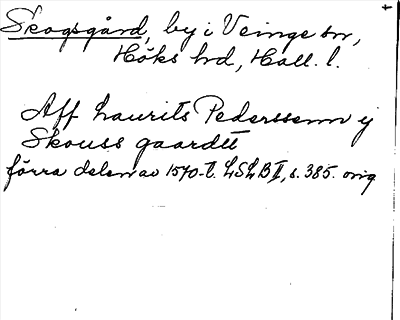 Skogsgård, by i Veinge sn,
Höks hd, Hall. l.
Aff Laurits Pederssenn ij
Skouss gaardtt
förra delen av 1570-t. LSLB II, s. 385. orig